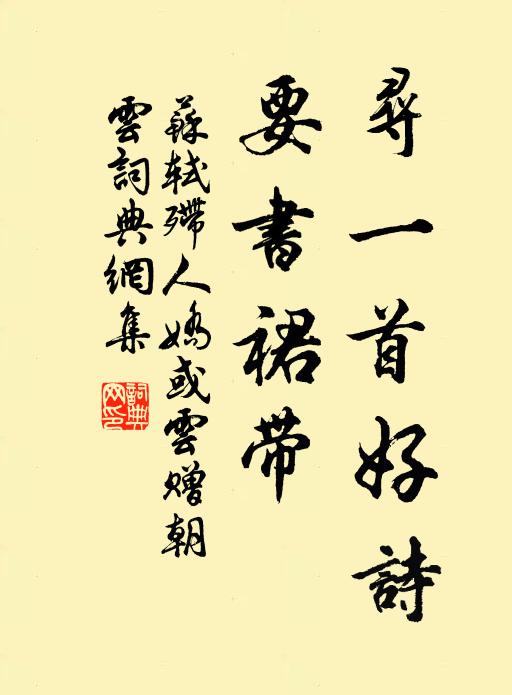 尋一首好詩
要書裙帶
蘇軾殢人嬌或雲贈朝
雲詞典網集
詞典
网印